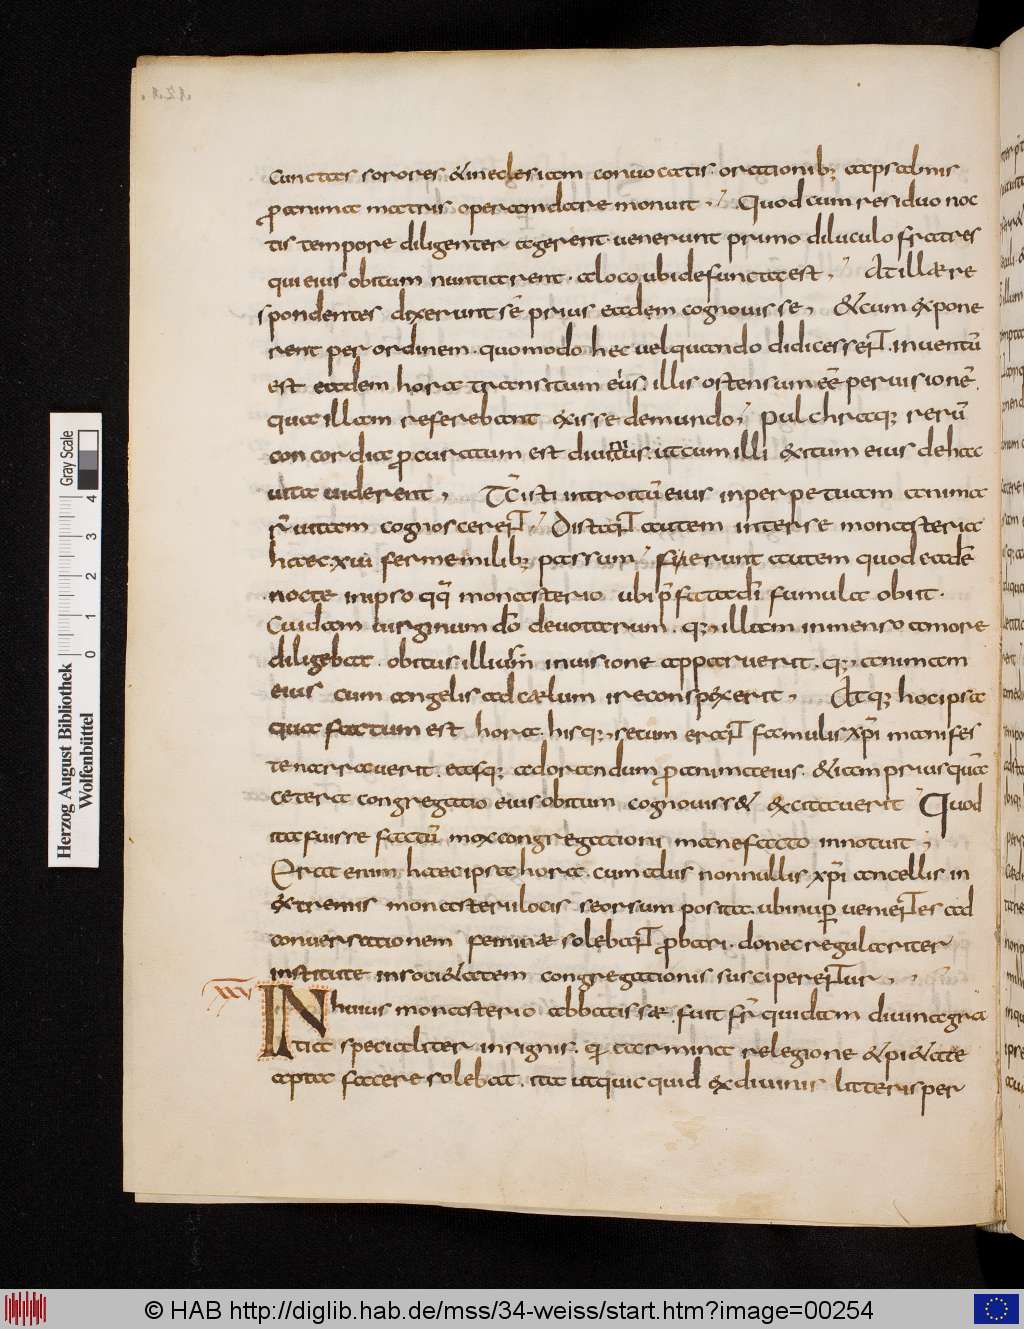 .121.
cunctas sorores & in eclesiam conuocatis orationib; ac psalmis
ꝓ anima matris operam dare monuit ; Quod cum residuo noc
tis tempore diligenter agerent · uenerunt primo diluculo fratres
qui eius obitum nuntiarent · a loco ubi defuncta est ; At illæ re
spondentes dixerunt sē prius eadem cognouisse ; &cum expone
rent per ordinem · quomodo hec uel quando didicisser̄ · inuentū
est eadem hora transitum eius illis ostensum eē per uisionē
qua illam referebant exisse de mundo ; pulchraq; rerū
concordia ꝓcuratum est diuinitus ut cum illi exitum eius de hac
uita uiderent , Tc̄ isti introitū eius in perpetuam anima
rū uitam cognoscerer̄ ; Distar̄ autem inter se monasteria
haec · xiii ferme milib; passuum ; ferunt autem quod eadē
nocte in ipso qq̄ monasterio ubi p̄fata dī famula obiit ·
Cuidam uirginum dō deuotarum · q; illam inmenso amore
diligebat · obitus illius in uisione apparuerit · q; animam
eius cum angelis ad cælum ire conspexerit ; Atq; hoc ipsa
qua factum est hora · hisq; secum erar̄ famulis xp̄i manifes
te narrauerit · easq; ad orandum ꝓ anima eius · &iam priusquā
cetera congregatio eius obitum cognouiss& excitauerit Quod
ita fuisse factū mox congregationi mane facto innotuit ;
Erat enim haec ipsa hora · cum aliis nonnullis xp̄i ancellis in
extremis monasterii locis seorsum posita · ubi nuꝑ uenier̄es ad
conuersationem feminæ solebar̄ ꝓbari · donec regulariter
institute in soci&atem congregationis susciperer̄ur ;
xxv
IN huius monasterio abbatissæ · fuit fr̄ quidam diuina gra
tia specialiter insignis · q̄ carmina relegione &pi&ate
apta facere solebat · ita ut quicquid ex diuinis litteris per
Herzog August Bibliothek
Wolfenbüttel
0 1 2 3 4
Gray Scale
© HAB http://diglib.hab.de/mss/34-weiss/start.htm?image=00254